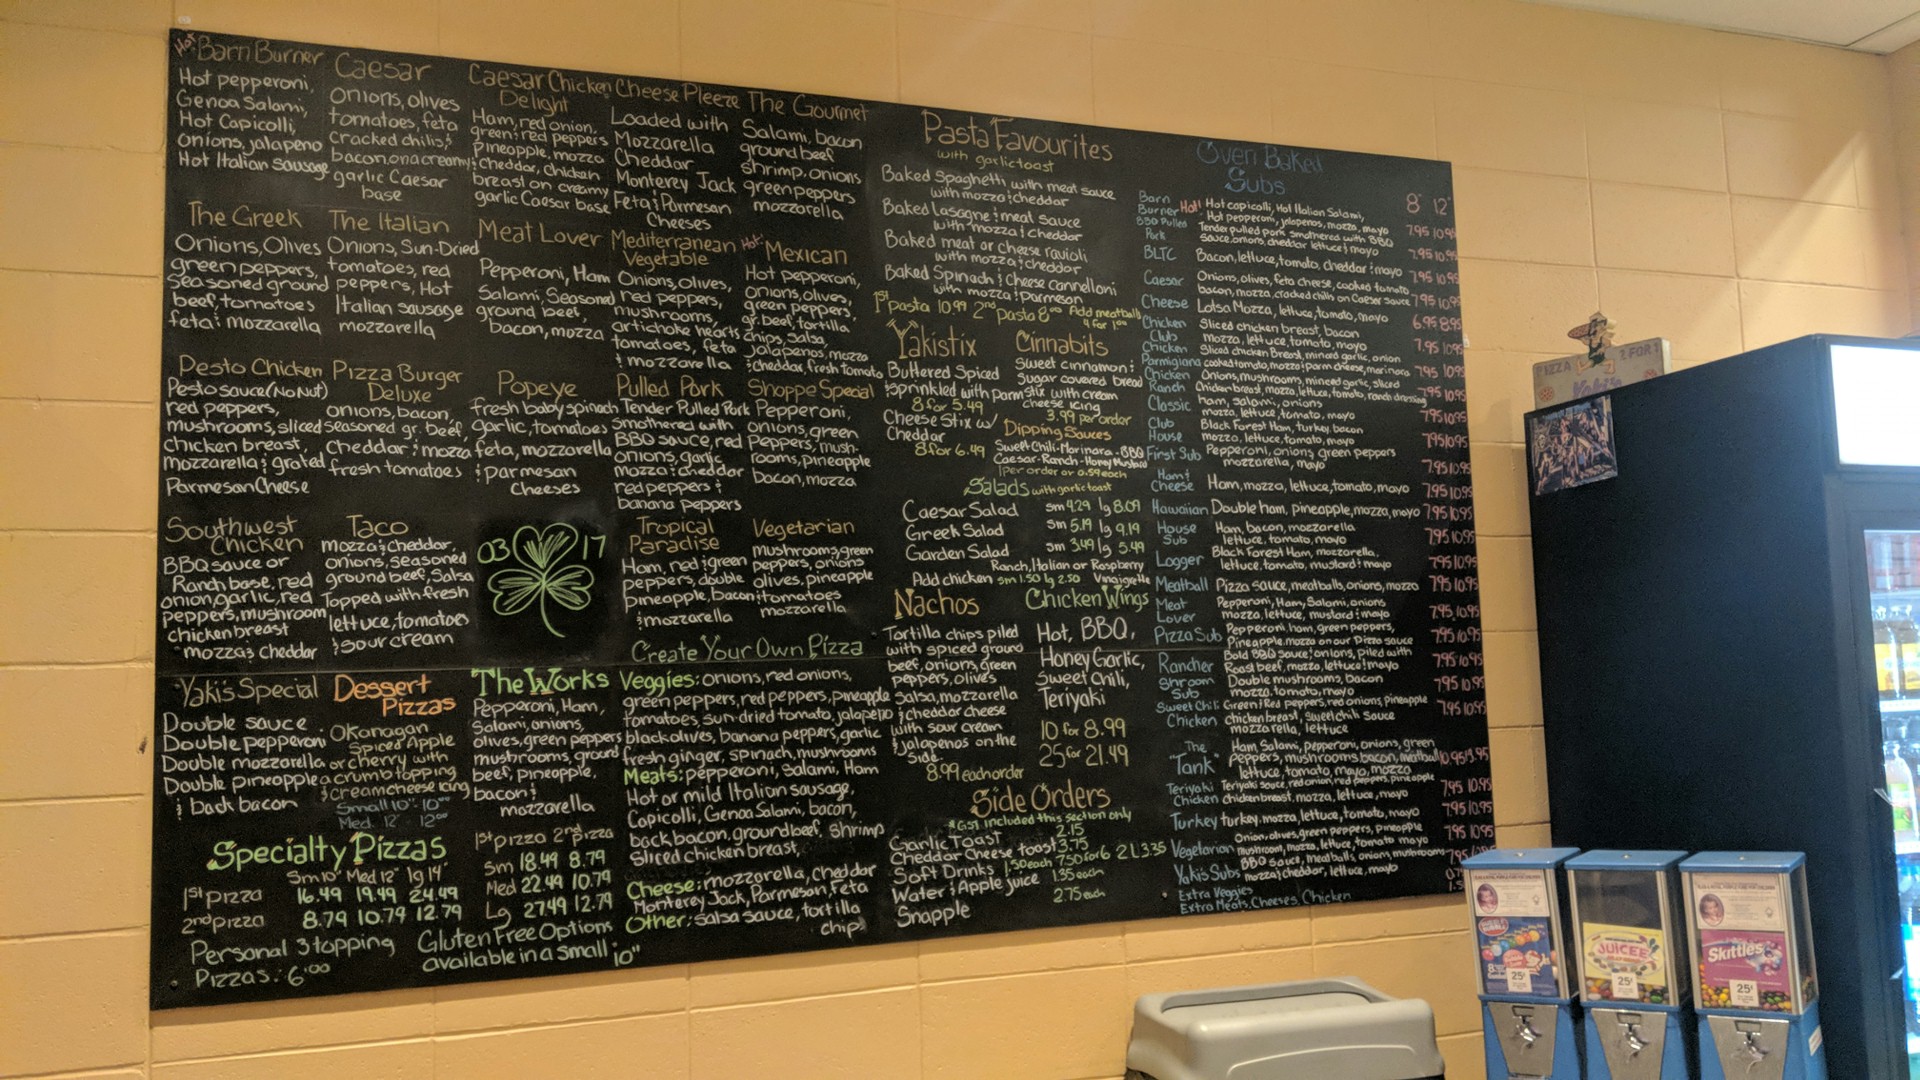 Hot Barn Burner
Hot pepperoni,
Genoa Salami,
Hot Capicolli,
onions, jalapeno
Hot Italian Sausage
Caesar
onions, olives
tomatoes, feta
cracked chilis,
bacon on a creamy
garlic Caesar
base
Caesar Chicken
Delight
Ham, red onion,
green & red peppers
Pineapple, mozza
& cheddar, chicken
breast on creamy
garlic Caesar base
Cheese Pleeze
Loaded with
Mozzarella
Cheddar
Monterey Jack
Feta & Parmesan
Cheeses
The Gourmet
Salami, bacon
ground beef
shrimp, onions
green peppers
mozzarella
The Greek
Onions, Olives
green peppers,
seasoned ground
beef, tomatoes
feta & mozzarella
The Italian
Onions, Sun-Dried
tomatoes, red
peppers, Hot
Italian sausage
mozzarella
Meat Lover
Pepperoni, Ham
Salami, Seasoned
ground beef,
bacon, mozza
Mediterranean
Vegetable
Onions, olives,
red peppers,
mushrooms,
artichoke hearts
tomatoes, feta
& mozzarella
Hot! Mexican
Hot pepperoni,
onions, olives,
green peppers,
gr. beef, tortilla
chips, salsa,
jalapenos, mozza
& cheddar, fresh tomato
Pesto Chicken
Pesto sauce (No Nut)
red peppers,
mushrooms, sliced
chicken breast,
mozzarella & grated
Parmesan Cheese
Pizza Burger
Deluxe
onions, bacon,
seasoned gr. beef,
Cheddar & mozza
fresh tomatoes
Popeye
fresh baby spinach
garlic, tomatoes
feta, mozzarella
& parmesan
Cheeses
Pulled Pork
Tender Pulled Pork
Smothered with
BBQ sauce, red
onions, garlic
mozza & cheddar
red peppers &
banana peppers
Shoppe Special
Pepperoni,
onions, green
Peppers, mush-
rooms, pineapple
bacon, mozza
Southwest
Chicken
BBQ sauce or
Ranch base, red
onion, garlic, red
peppers, mushroom
chicken breast
mozza & cheddar
Taco
mozza & cheddar,
onions, seasoned
ground beef, Salsa
Topped with fresh
lettuce, tomatoes
& sour cream
03 17
Tropical
Paradise
Ham, red & green
peppers, double
pineapple, bacon
& mozzarella
Vegetarian
mushrooms, green
peppers, onions
olives, pineapple
& tomatoes
mozzarella
Yaki's Special
Double sauce
Double pepperoni
Double mozzarella
Double pineapple
& back bacon
Dessert
Pizzas
Okanagan
Spiced Apple
or cherry with
a crumb topping
& cream cheese icing
Small 10" 10.00
Med. 12" 12.00
The Works
Pepperoni, Ham,
Salami, onions,
olives, green peppers
mushrooms, ground
beef, pineapple,
bacon &
mozzarella
1st pizza 2nd pizza
Sm 18.49 8.79
Med 22.49 10.79
Lg 27.49 12.79
Create Your Own Pizza
Veggies: onions, red onions,
green peppers, red peppers, pineapple
tomatoes, sun-dried tomato, jalapeno
black olives, banana peppers, garlic
fresh ginger, spinach, mushrooms
Meats: pepperoni, Salami, Ham
Hot or mild Italian sausage,
Capicolli, Genoa Salami, bacon,
back bacon, ground beef, shrimp
Sliced chicken breast,
Cheese: mozzarella, cheddar
Monterey Jack, Parmesan, Feta
Other: salsa sauce, tortilla
chips
Specialty Pizzas
Sm 10" Med 12" lg 14"
1st pizza 16.49 19.49 24.49
2nd pizza 8.79 10.79 12.79
Personal 3 topping
Pizzas: 6.00
Gluten Free Options
available in a Small 10"
Pasta Favourites
with garlic toast
Baked Spaghetti with meat sauce
with mozza & cheddar
Baked Lasagne & meat sauce
with mozza & cheddar
Baked meat or cheese ravioli
with mozza & cheddar
Baked Spinach & Cheese cannelloni
with mozza & parmesan
1st pasta 10.99 2nd pasta 8.00 Add meatballs
4 for 1.00
Yakistix
Buttered Spiced
& sprinkled with parm
8 for 5.49
Cheese Stix w/
Cheddar
8 for 6.49
Cinnabits
Sweet cinnamon &
Sugar covered bread
stix with cream
cheese icing
3.99 per order
Dipping Sauces
Sweet Chili - Marinara - BBQ
Caesar - Ranch - Honey Mustard
1 per order or 0.59 each
Salads with garlic toast
Caesar Salad sm 4.29 lg 8.09
Greek Salad sm 5.19 lg 9.19
Garden Salad sm 3.49 lg 5.49
Ranch, Italian or Raspberry
Vinaigrette
Add chicken sm 1.50 lg 2.50
Nachos
Tortilla chips piled
with spiced ground
beef, onions, green
peppers, olives
Salsa, mozzarella
& cheddar cheese
with sour cream
& jalapenos on the
side.
8.99 each order
Chicken Wings
Hot, BBQ,
Honey Garlic,
Sweet Chili,
Teriyaki
10 for 8.99
25 for 21.49
Side Orders
*GST included this section only
Garlic Toast 2.15
Cheddar Cheese toast 3.75
Soft Drinks 1.50 each 7.50 for 6 2L 3.35
Water & Apple juice 1.35 each
Snapple 2.75 each
Oven Baked
Subs
8" 12"
Barn Burner Hot! Hot capicolli, Hot Italian Salami,
Hot pepperoni, jalapenos, mozza, mayo 7.95 10.95
BBQ Pulled Pork Tender pulled pork smothered with BBQ
sauce, onions, cheddar, lettuce & mayo 7.95 10.95
BLTC Bacon, lettuce, tomato, cheddar & mayo 7.95 10.95
Caesar Onions, olives, feta cheese, cooked tomato,
bacon, mozza, cracked chilli on Caesar sauce 7.95 10.95
Cheese Lotsa Mozza, lettuce, tomato, mayo 6.95 8.95
Chicken Club Sliced chicken breast, bacon
mozza, lettuce, tomato, mayo 7.95 10.95
Chicken Parmigiana Sliced chicken breast, minced garlic, onion
cooked tomato, mozza & parm cheese, marinara 7.95 10.95
Chicken Ranch Onions, mushrooms, minced garlic, sliced
chicken breast, mozza, lettuce, tomato, ranch dressing 7.95 10.95
Classic ham, salami, onions
mozza, lettuce, tomato, mayo 7.95 10.95
Club House Black Forest Ham, turkey, bacon
mozza, lettuce, tomato, mayo 7.95 10.95
First Sub Pepperoni, onions, green peppers
mozzarella, mayo 7.95 10.95
Ham & Cheese Ham, mozza, lettuce, tomato, mayo 7.95 10.95
Hawaiian Double ham, pineapple, mozza, mayo 7.95 10.95
House Sub Ham, bacon, mozzarella
lettuce, tomato, mayo 7.95 10.95
Logger Black Forest Ham, mozzarella,
lettuce, tomato, mustard & mayo 7.95 10.95
Meatball Pizza sauce, meatballs, onions, mozza 7.95 10.95
Meat Lover Pepperoni, Ham, Salami, onions
mozza, lettuce, mustard & mayo 7.95 10.95
Pizza Sub Pepperoni, ham, green peppers,
Pineapple, mozza on our Pizza sauce 7.95 10.95
Rancher Bold BBQ sauce & onions, piled with
Roast beef, mozza, lettuce & mayo 7.95 10.95
Shroom Sub Double mushrooms, bacon
mozza, tomato, mayo 7.95 10.95
Sweet Chili Chicken Green & Red peppers, red onions, pineapple
chicken breast, sweet chili sauce
mozzarella, lettuce 7.95 10.95
The "Tank" Ham, Salami, pepperoni, onions, green
peppers, mushrooms, bacon, meatball
lettuce, tomato, mayo, mozza 10.95 13.95
Teriyaki Chicken Teriyaki sauce, red onion, red peppers, pineapple
chicken breast, mozza, lettuce, mayo 7.95 10.95
Turkey turkey, mozza, lettuce, tomato, mayo 7.95 10.95
Vegetarian Onion, olives, green peppers, pineapple
mushroom, mozza, lettuce, tomato mayo 7.95 10.95
Yaki's Subs BBQ sauce, meatballs, onions, mushrooms
mozza & cheddar, lettuce, mayo 7.95
Extra Veggies
Extra Meats, Cheeses, Chicken
PIZZA 2 FOR 1
Yaki's
25¢
JUICEE
25¢
Skittles
25¢